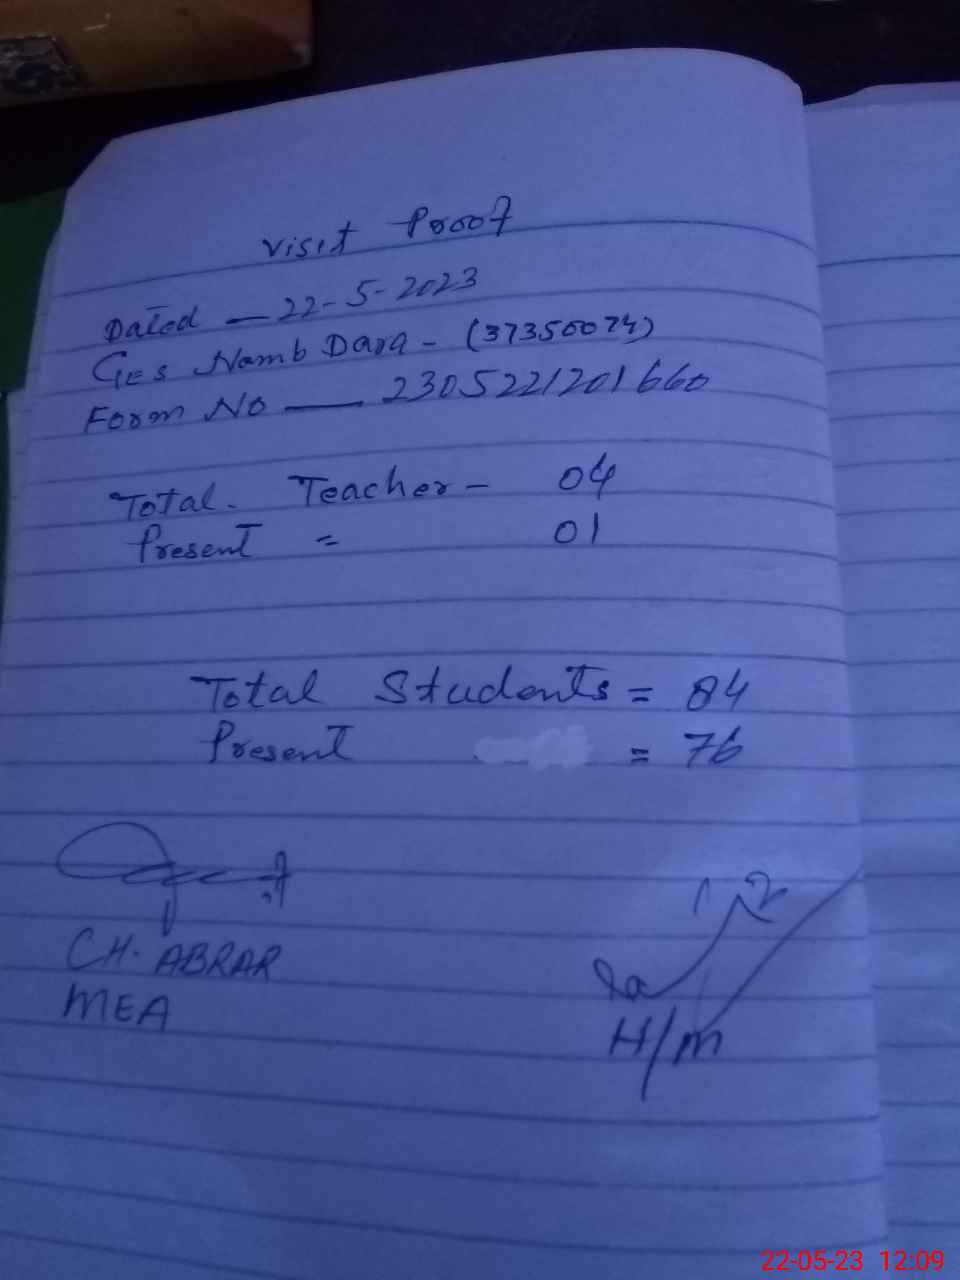 Visit Proof
Dated — 22-5-2023
GES Namb Dara - (37350074)
Form No — 2305221201660
Total. Teacher - 04
Present = 01
Total Students = 84
Present = 76
CH. ABRAR
MEA
H/M
22-05-23 12:09